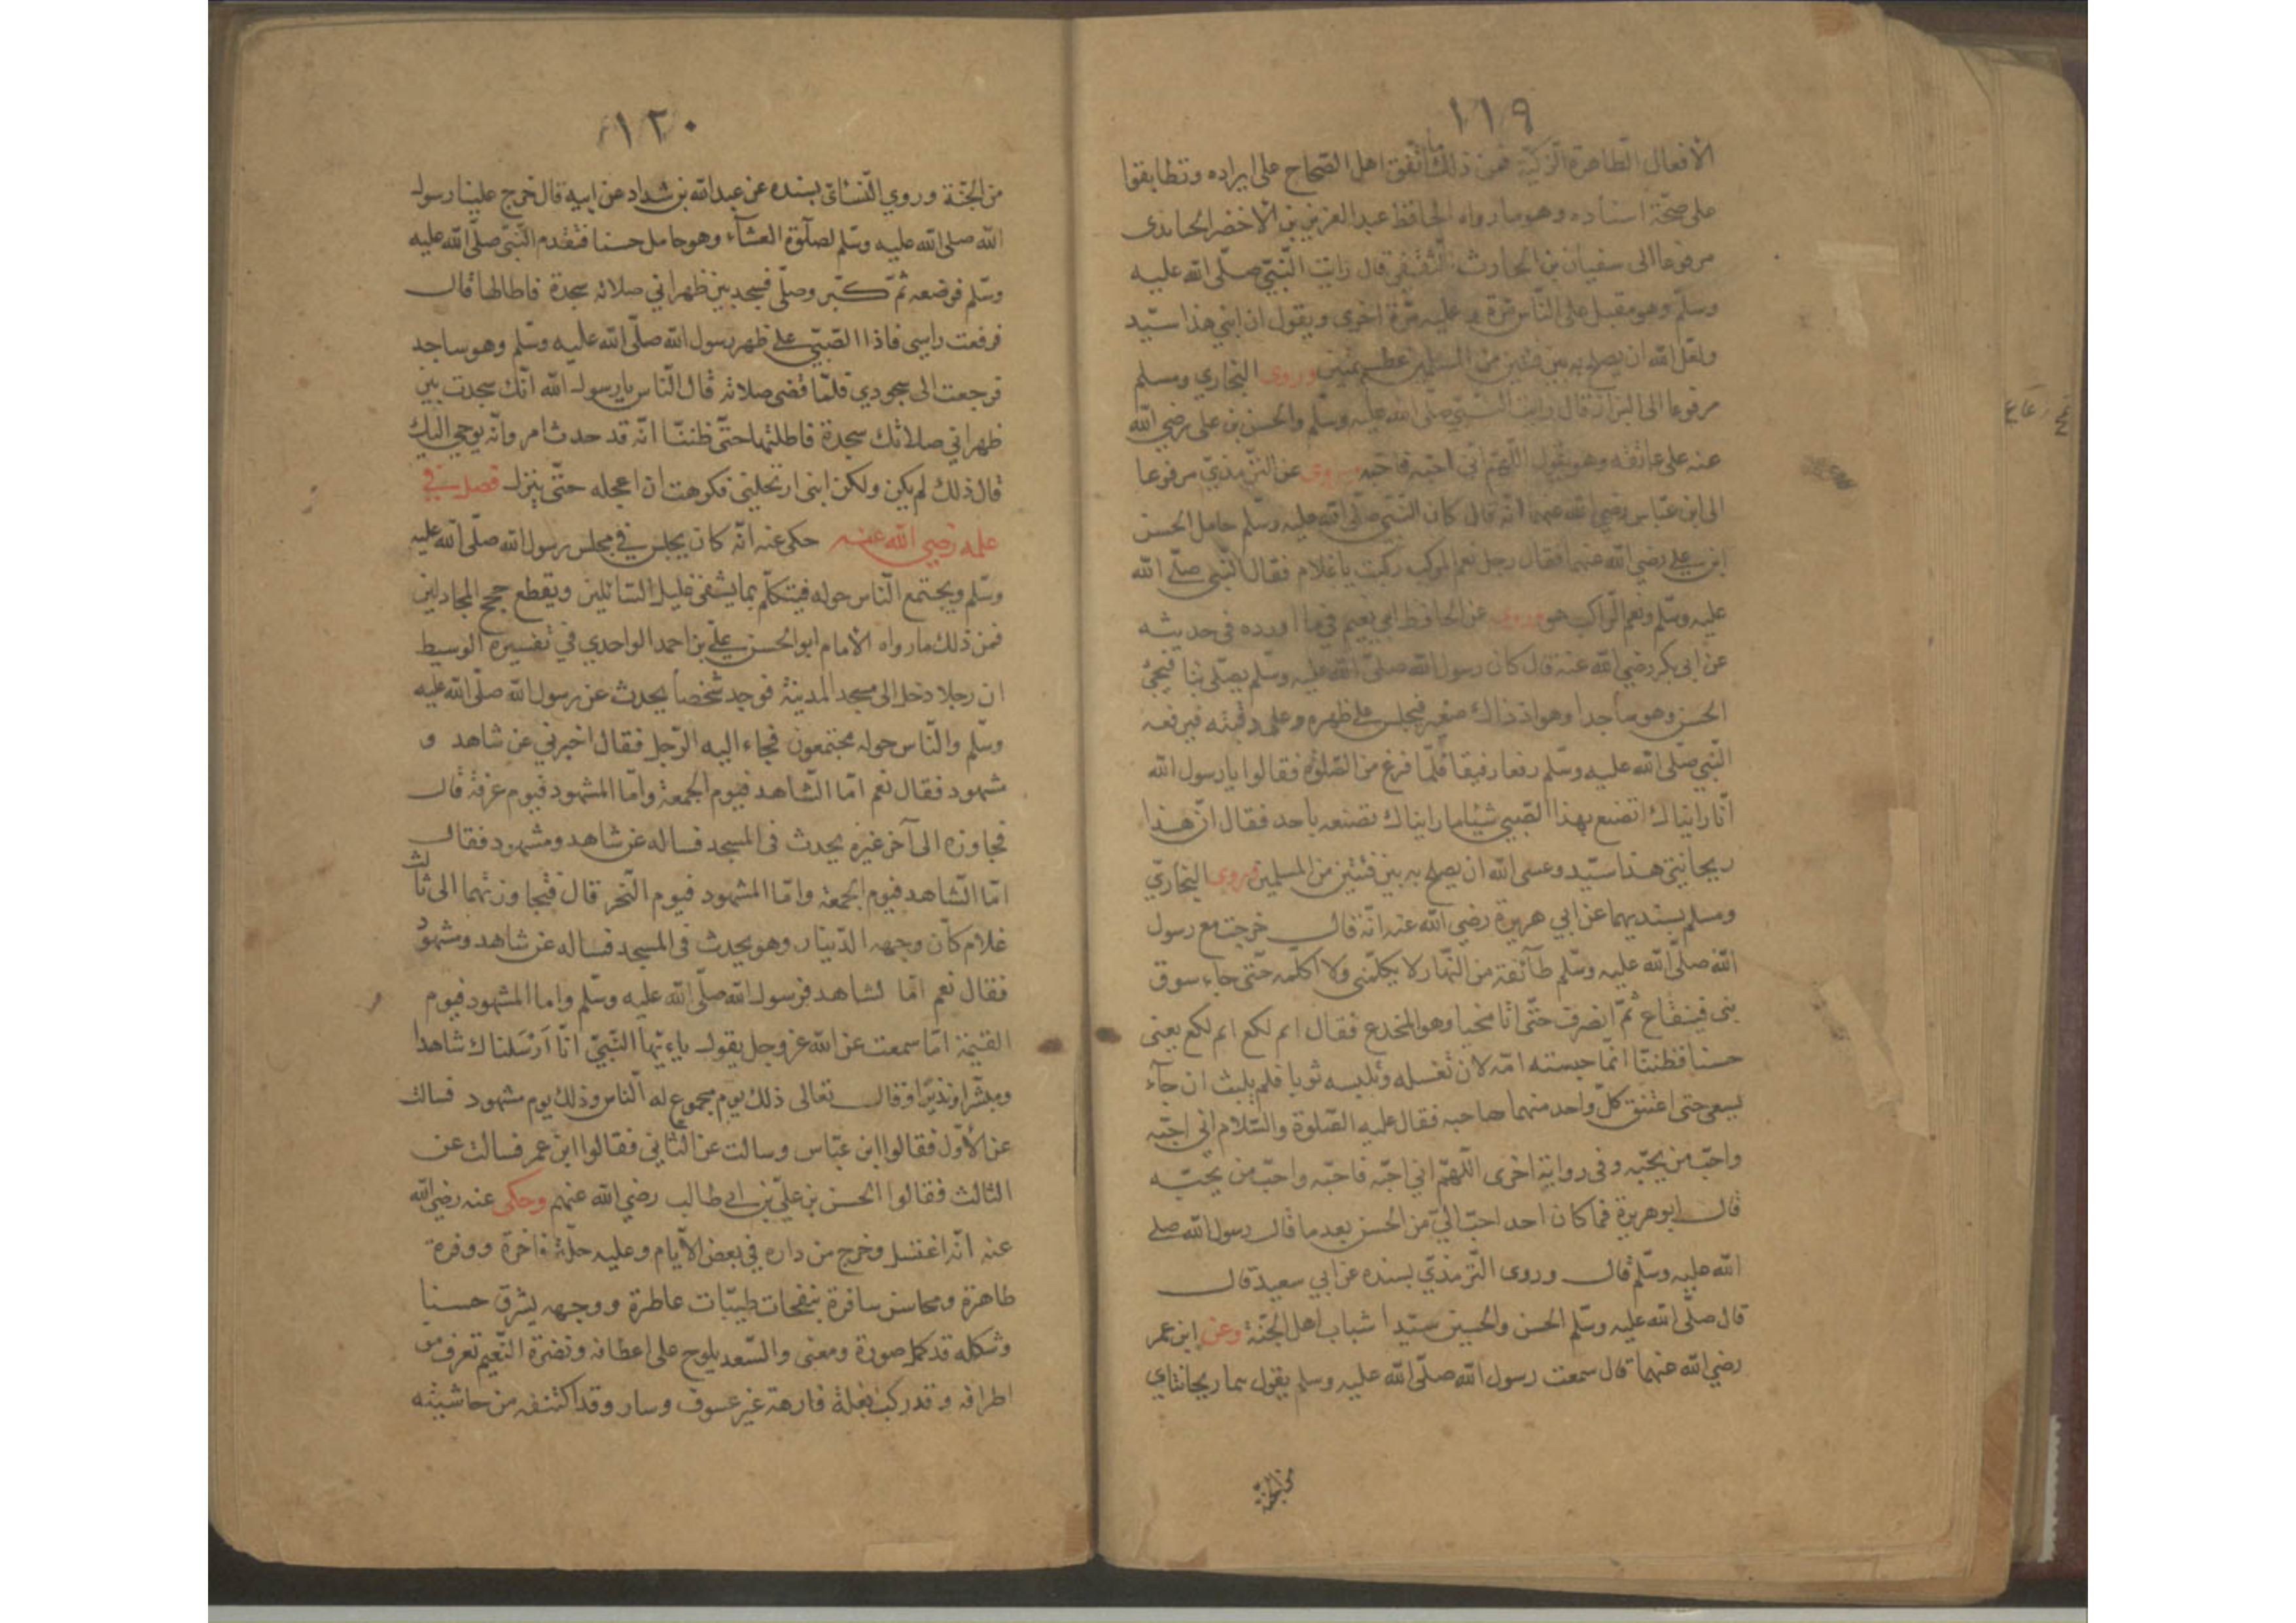 ١١٩
الافعال الطاهرة الزكيّة فمن ذلك ما اتّفق اهل الصّحاح على ايراده وتطابقوا
على صحّة اسناده وهو ما رواه الحافظ عبد العزيز بن الاخضر الجنابدى
مرفوعا الى سفيان بن الحارث الثّقفي قال رايت النّبيّ صلّى الله عليه
وسلّم وهو مقبل على النّاس مرّة و عليه مرّة اخرى ويقول ان ابني هذا سيّد
ولعلّ الله ان يصلح به بين فئتين من المسلمين عظيمتين وروى البخاري ومسلم
مرفوعا الى البرا انّه قال رايت النّبيّ صلّى الله عليه وسلّم والحسن بن على رضي الله
عنه على عاتقه وهو يقول اللّهمّ انّي احبّه فاحبّه وروى عن التّرمذيّ مرفوعا
الى ابن عبّاس رضي الله عنهما انّه قال كان النّبيّ صلّى الله عليه وسلّم حامل الحسن
ابن علي رضي الله عنهما فقال رجل نعم المركب ركبت يا غلام فقال النّبي صلّى الله
عليه وسلّم ونعم الرّاكب هو وروى عن الحافظ ابي نعيم في ما اورده في حديثه
عن ابى بكر رضي الله عنه قال كان رسول الله صلّى الله عليه وسلّم يصلّى بنا فيجئ
الحسن وهو ساجدا وهو اذ ذاك صغير فيجلس على ظهره وعلى رقبته فيرفعه
النّبي صلّى الله عليه وسلّم رفعا رفيقا فلمّا فرغ من الصّلوة فقالوا يا رسول الله
انّا رايناك تصنع بهذا الصّبي شيئا ما رايناك تصنعه باحد فقال انّ هذا
ريحانتي هذا سيّد وعسى الله ان يصلح به بين فئتين من المسلمين وروى البخاريّ
ومسلم بسنديهما عن ابي هريرة رضي الله عنه انّه قال خرجت مع رسول
الله صلّى الله عليه وسلّم طآئفة من النّهار لا يكلّمني ولا اكلّمه حتّى جاء سوق
بنى قينقاع ثمّ انصرف حتّى اتا مخبا وهو المخدع فقال اثم لكع اثم لكع يعنى
حسنا فظننّا انّما حبسته امّه لان تغسله وتلبسه ثوبا فلم يلبث ان جآء
يسعى حتى اعتنق كلّ واحد منهما صاحبه فقال عليه الصّلوة والسّلام انّي احبّه
واحبّ من يحبّه وفى رواية اخرى اللّهمّ اني احبّه فاحبّه واحبّ من يحبّه
قال ابو هريرة فما كان احد احبّ اليّ من الحسن بعد ما قال رسول الله صلى
الله عليه وسلّم قال وروى التّرمذيّ بسنده عن ابي سعيد قال
قال صلّى الله عليه وسلّم الحسن والحسين سيّدا شباب اهل الجنّة وعن ابن عمر
رضي الله عنهما قال سمعت رسول الله صلّى الله عليه وسلم يقول هما ريحانتاي
من الجنّة
١٢٠
من الجنّة وروي النّسائى بسنده عن عبد الله بن شداد عن ابيه قال خرج علينا رسول
الله صلى الله عليه وسلّم لصلوة العشآء وهو حامل حسنا فتقدم النّبيّ صلّى الله عليه
وسلّم فوضعه ثمّ كبّر وصلّى فسجد بين ظهراني صلاته سجدة فاطالها قال
فرفعت راسي فاذا الصّبيّ على ظهر رسول الله صلّى الله عليه وسلّم وهو ساجد
فرجعت الى سجودي فلمّا قضى صلاته قال النّاس يا رسول الله انّك سجدت بين
ظهراني صلاتك سجدة فاطلتها حتّى ظننّا انّه قد حدث امر وانّه يوحي اليك
قال ذلك لم يكن ولكن ابنى ارتحلني فكرهت ان اعجله حتّى ينزل فصل في
علمه رضي الله عنه حكى عنه انّه كان يجلس في مجلس رسول الله صلّى الله عليه
وسلّم ويجتمع النّاس حوله فيتكلّم بما يشفى غليل السّائلين ويقطع حجج المجادلين
فمن ذلك ما رواه الامام ابو الحسن علىّ بن احمد الواحدي في تفسيره الوسيط
ان رجلا دخل الى مسجد المدينة فوجد شخصاً يحدث عن رسول الله صلّى الله عليه
وسلّم والنّاس حوله مجتمعون فجاء اليه الرّجل فقال اخبرني عن شاهد و
مشهود فقال نعم امّا الشّاهد فيوم الجمعة وامّا المشهود فيوم عرفة قال
فجاوزه الى آخر غيره يحدث في المسجد فساله عن شاهد ومشهود فقال
امّا الشّاهد فيوم الجمعة وامّا المشهود فيوم النّحر قال فتجاوزتهما الى ثالث
غلام كانّ وجهه الدّينار وهو يحدث في المسجد فساله عن شاهد ومشهود
فقال نعم امّا لشاهد فرسول الله صلّى الله عليه وسلّم واما المشهود فيوم
القيمة امّا سمعت عن الله عز وجل يقول ياءيّها النّبيّ انّا اَرْسَلناك شاهدا
ومبشّرا ونذيرا وقال تعالى ذلك يوم مجموع له النّاس وذلك يوم مشهود فسالت
عن الاوّل فقالوا ابن عبّاس وسالت عن الثّاني فقالوا ابن عمر فسالت عن
الثالث فقالوا الحسن بن عليّ بن ابى طالب رضي الله عنهم وحكى عنه رضي الله
عنه انّه اغتسل وخرج من داره في بعض الايّام وعليه حلّة فاخرة ووفرة
طاهرة ومحاسن سافرة بنفحات طيبّات عاطرة ووجهه يشرق حسنا
وشكله قد كمل صورة ومعنى والسّعد يلوح على اعطافه ونضرة النّعيم تعرف من
اطرافه وقد ركب بغلة فارهة غير عسوف وسار وقد اكتنفه من حاشيته